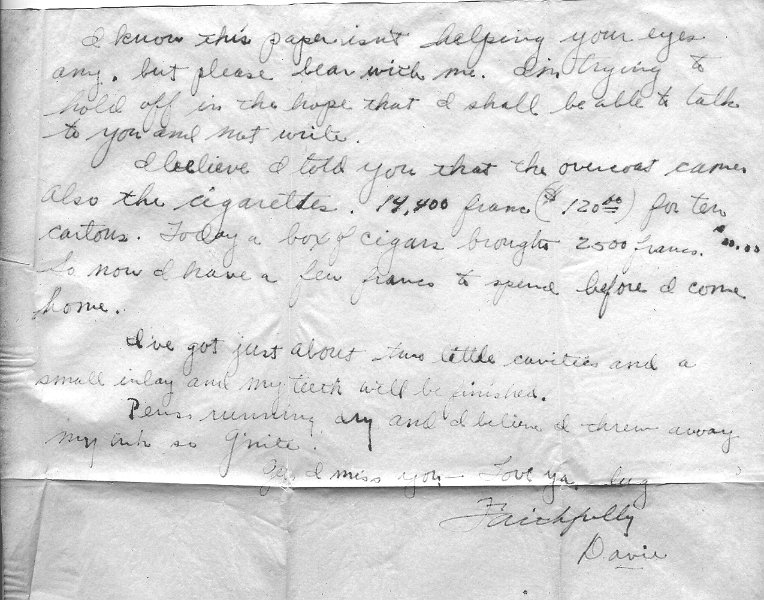 I know this paper isn't helping your eyes
any, but please bear with me. I'm trying to
hold off in the hope that I shall be able to talk
to you and not write.
I believe I told you that the overcoat came
Also the cigarettes. 14,400 francs ($120.00) for ten
cartons. Today a box of cigars brought 2500 francs. $20.00
So now I have a few francs to spend before I come
home.
I've got just about two little cavities and a
small inlay and my teeth will be finished.
Pens running dry and I believe I threw away
my ink so G'nite.
I miss you - Love ya,
Faithfully
Davie